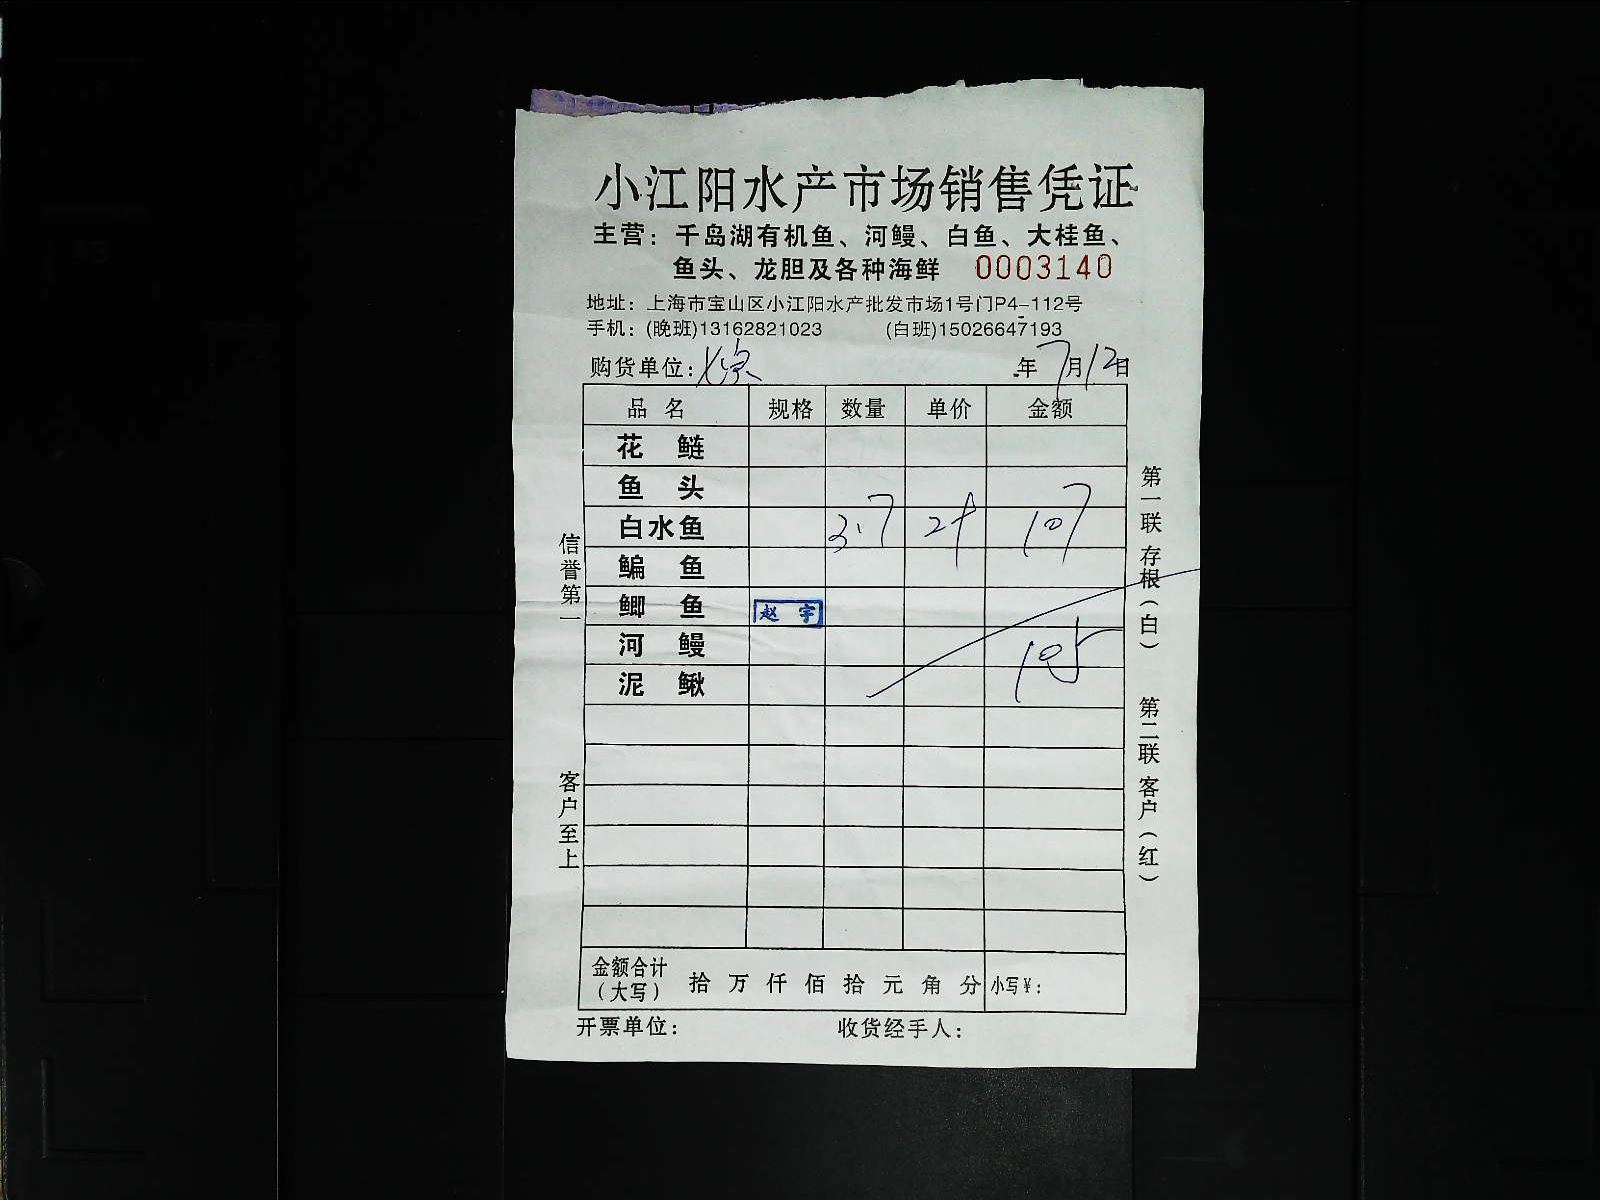 小江阳水产市场销售凭证
主营：千岛湖有机鱼、河鳗、白鱼、大桂鱼、
鱼头、龙胆及各种海鲜 0003140
地址：上海市宝山区小江阳水产批发市场1号门P4-112号
手机：(晚班)13162821023 (白班)15026647193
购货单位： 年7月12日
品名 规格 数量 单价 金额
花鲢
鱼头
白水鱼 3.7 107
鳊鱼
鲫鱼 赵宇
河鳗 105
泥鳅
金额合计（大写） 拾万仟佰拾元角分 小写¥：
开票单位： 收货经手人：
信誉第一
客户至上
第一联 存根（白）
第二联 客户（红）